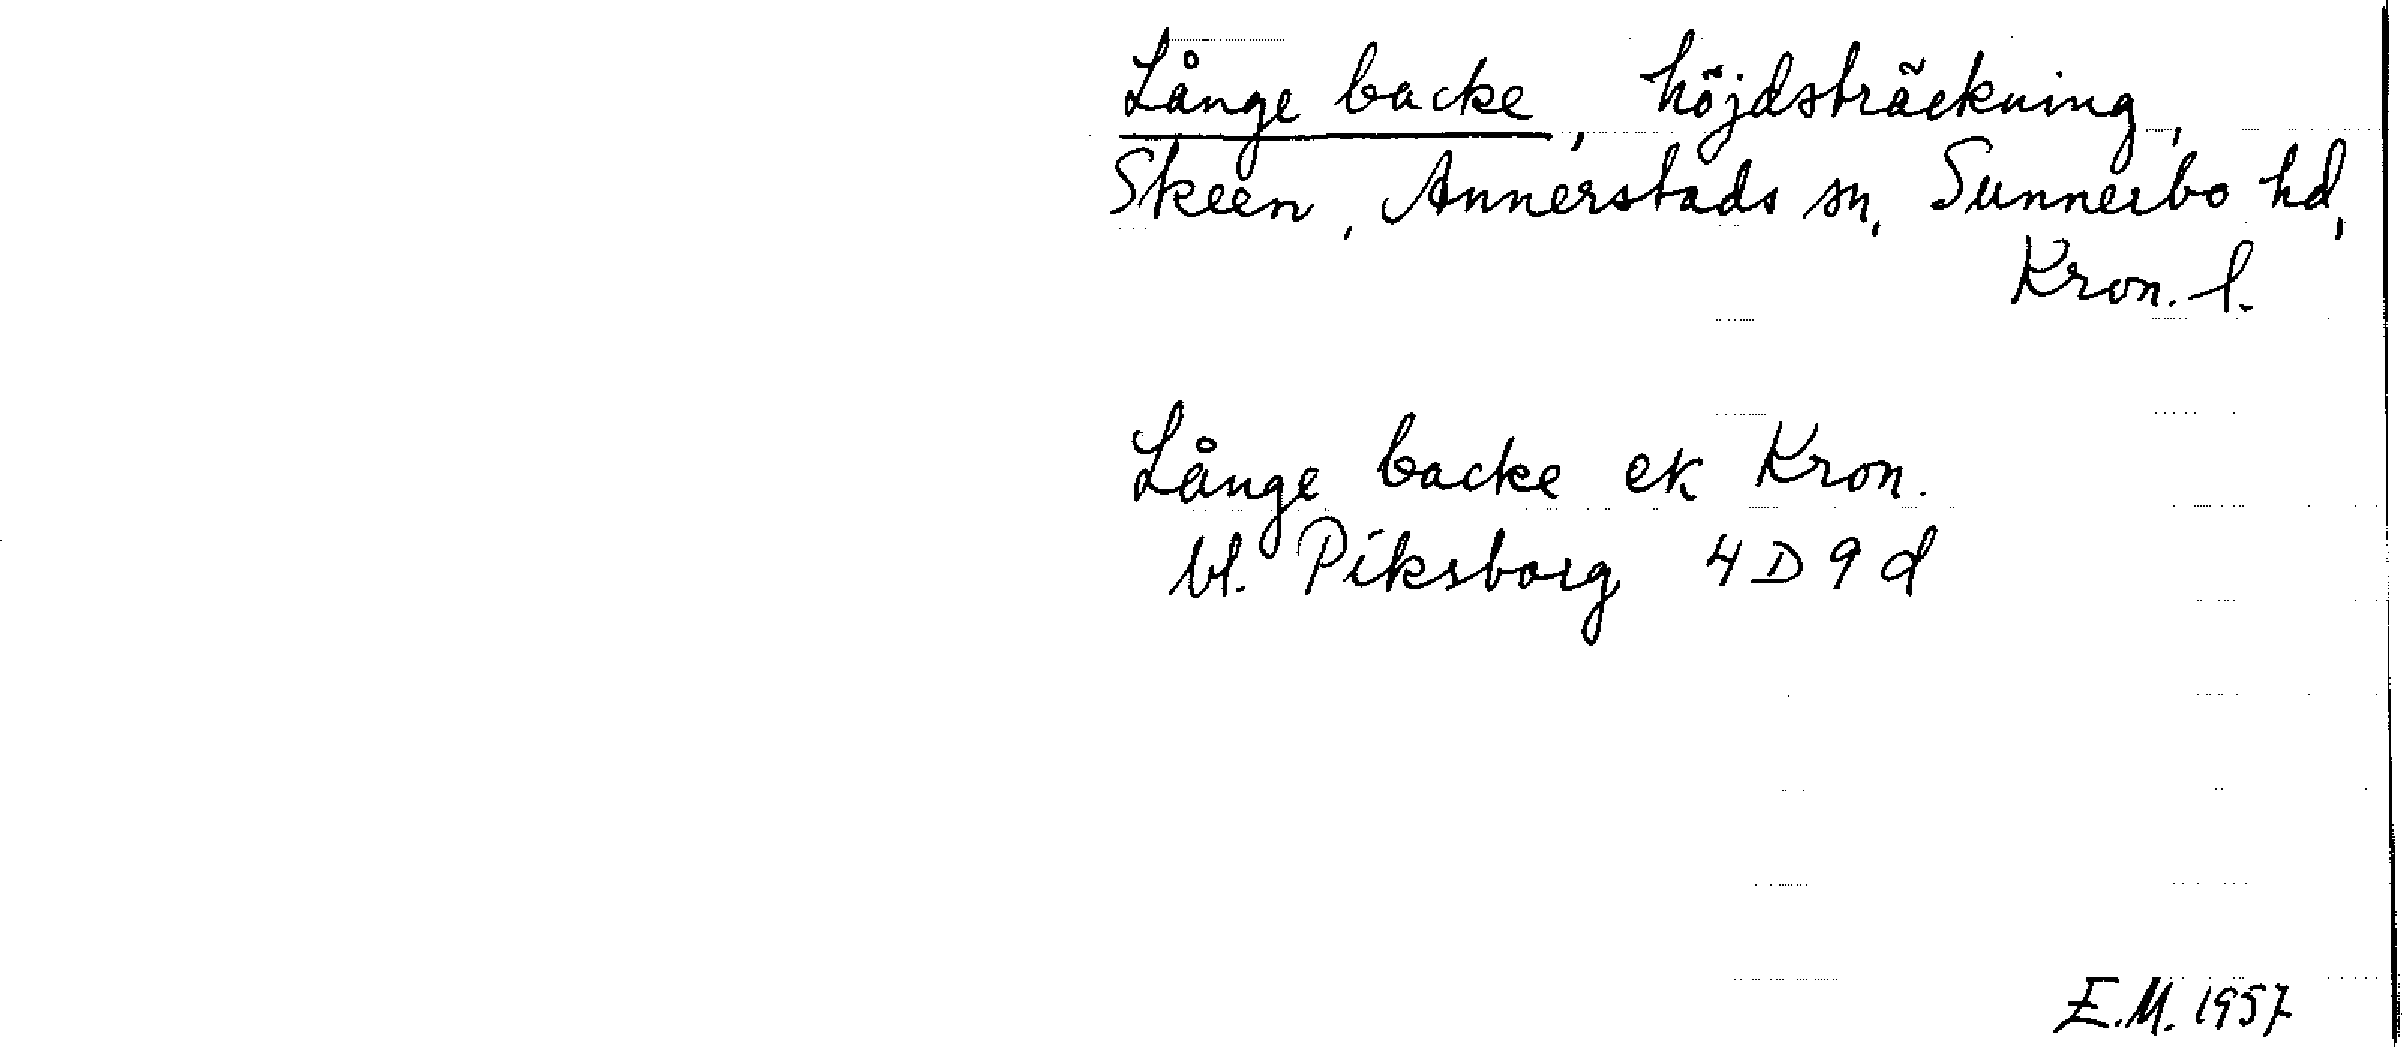 Långe backe, höjdsträckning,
Skeen, Annerstads sn, Sunnerbo hd,
Kron. l.
Långe backe ek Kron.
bl. Piksborg 4D9d
E.M. 1957